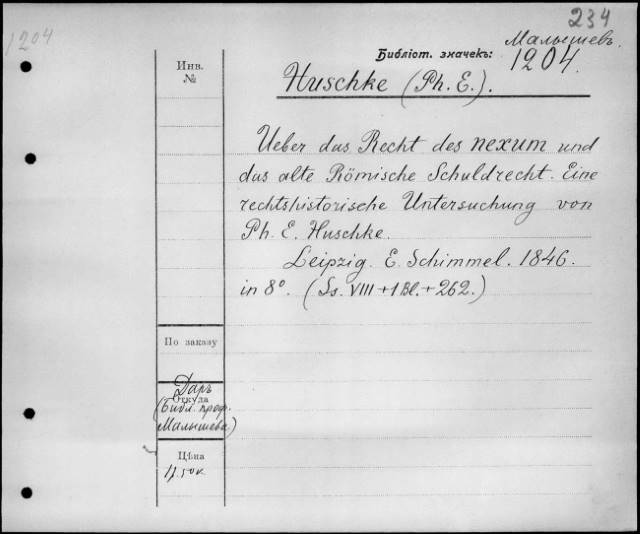 234
1204
Малышевъ.
Библіот. значекъ:
1204.
Инв.
№
Huschke (Ph. E.).
Ueber das Recht des nexum und
das alte Römische Schuldrecht. Eine
rechtshistorische Untersuchung von
Ph. E. Huschke.
Leipzig. E. Schimmel. 1846.
in 8º. (Ss. VIII + 1 Bl. + 262.)
По заказу
Даръ
Откуда
(Библ. проф.
Малышева)
Цѣна